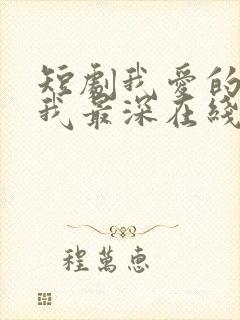 短劇我愛的
我最深在綫
程萬惠